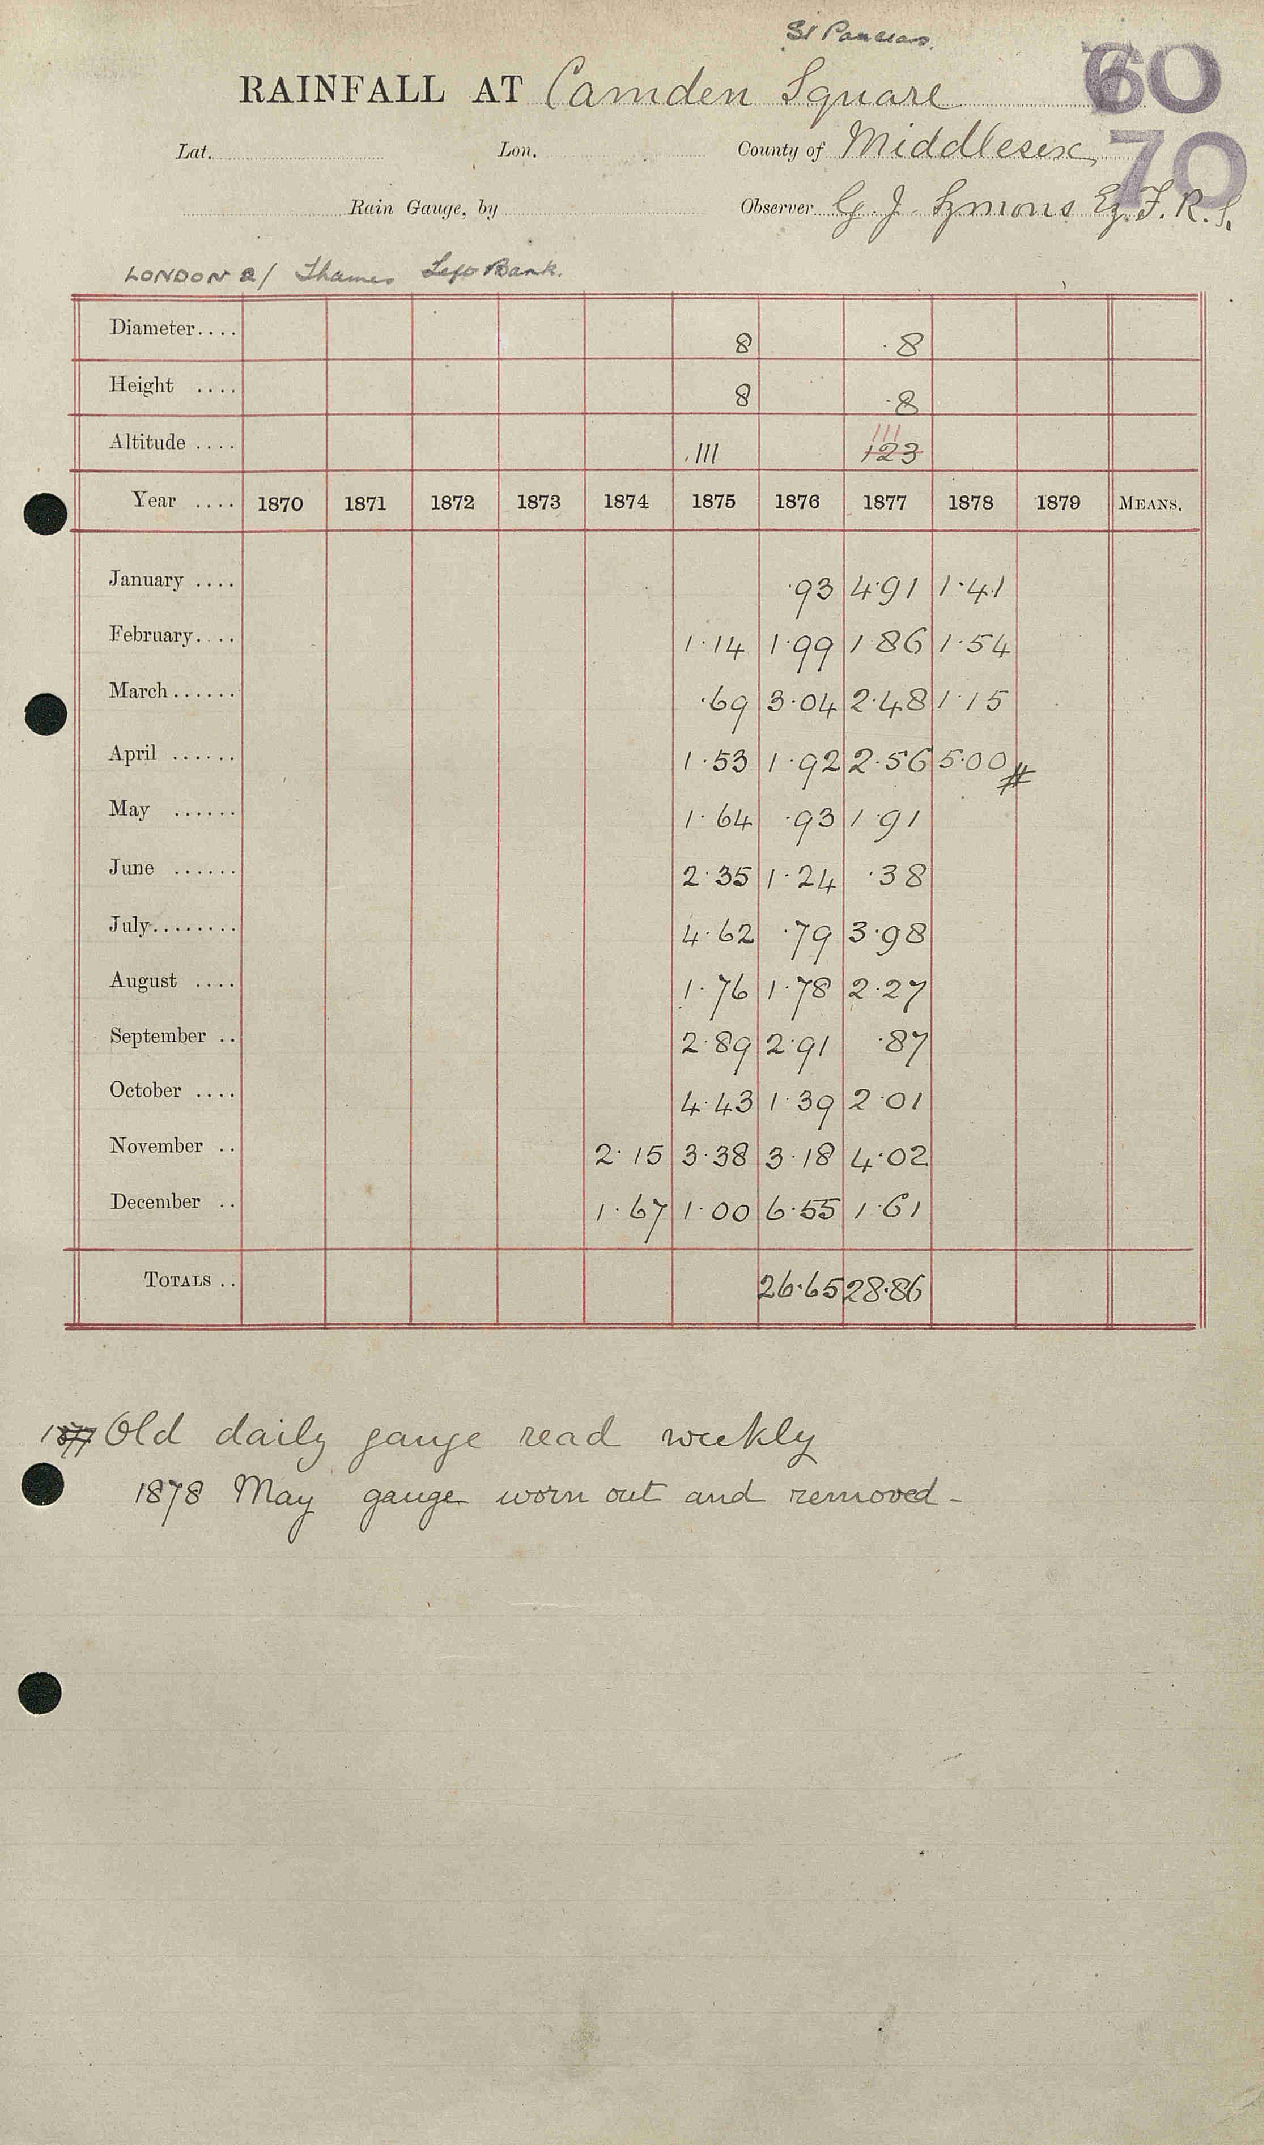 St Pancras.
RAINFALL AT Camden Square 60
Lat. Lon. County of Middlesex, 70
Rain Gauge, by Observer G. J. Symons Esq. F. R. S.
LONDON 2/ Thames Left Bank.
Diameter.... 8 ·8
Height .... 8 ·8
111
Altitude .... .111 123
Year .... 1870 1871 1872 1873 1874 1875 1876 1877 1878 1879 MEANS.
January .... ·93 4·91 1·41
February.... 1·14 1·99 1·86 1·54
March...... ·69 3·04 2·48 1·15
April ...... 1·53 1·92 2·56 5·00 #
May ...... 1·64 ·93 1·91
June ...... 2·35 1·24 ·38
July........ 4·62 ·79 3·98
August .... 1·76 1·78 2·27
September .. 2·89 2·91 ·87
October .... 4·43 1·39 2·01
November .. 2·15 3·38 3·18 4·02
December .. 1·67 1·00 6·55 1·61
TOTALS .. 26·65 28·86
1877 Old daily gauge read weekly
1878 May gauge worn out and removed -